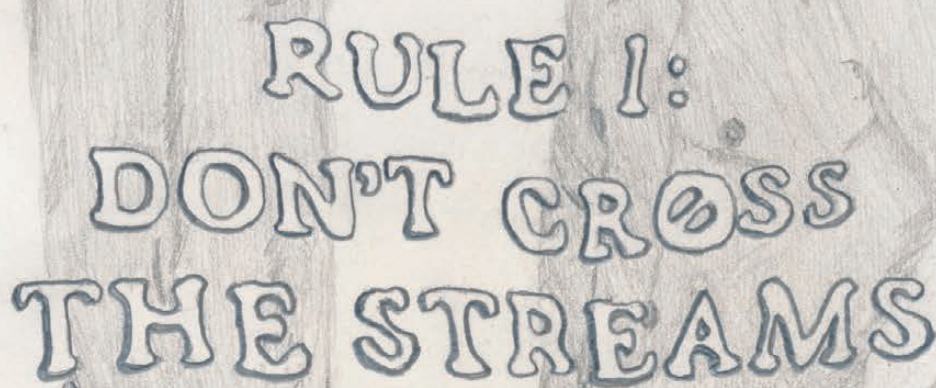 RULE 1:
DON'T CROSS
THE STREAMS